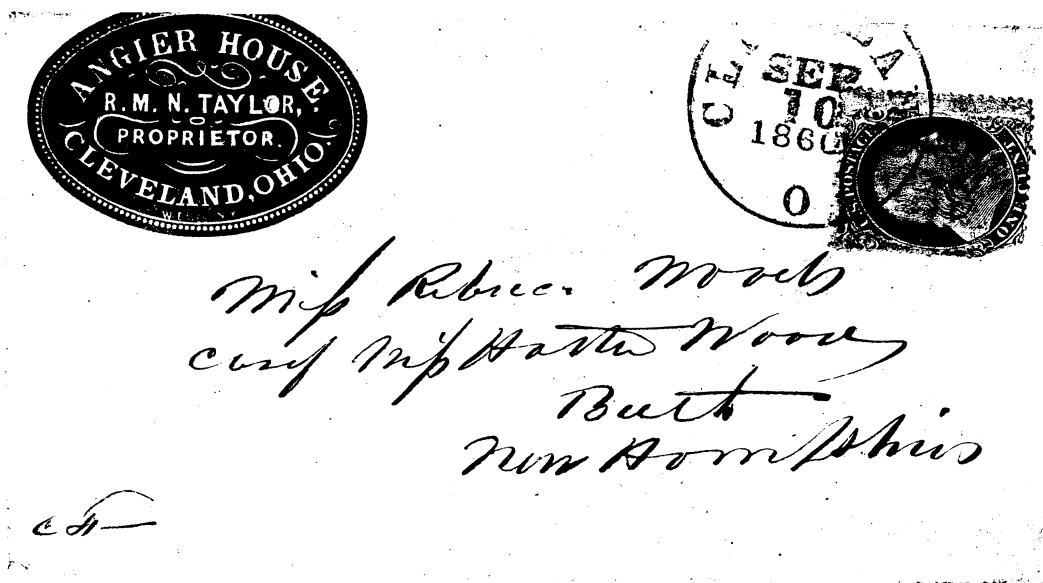 ANGIER HOUSE.
R. M. N. TAYLOR,
PROPRIETOR.
CLEVELAND, OHIO.
SEP
10
1860
O
POSTAGE
ONE CENT
Miss Rebecca Woods
Care of Miss Hattie Woods
Bath
New Hampshire